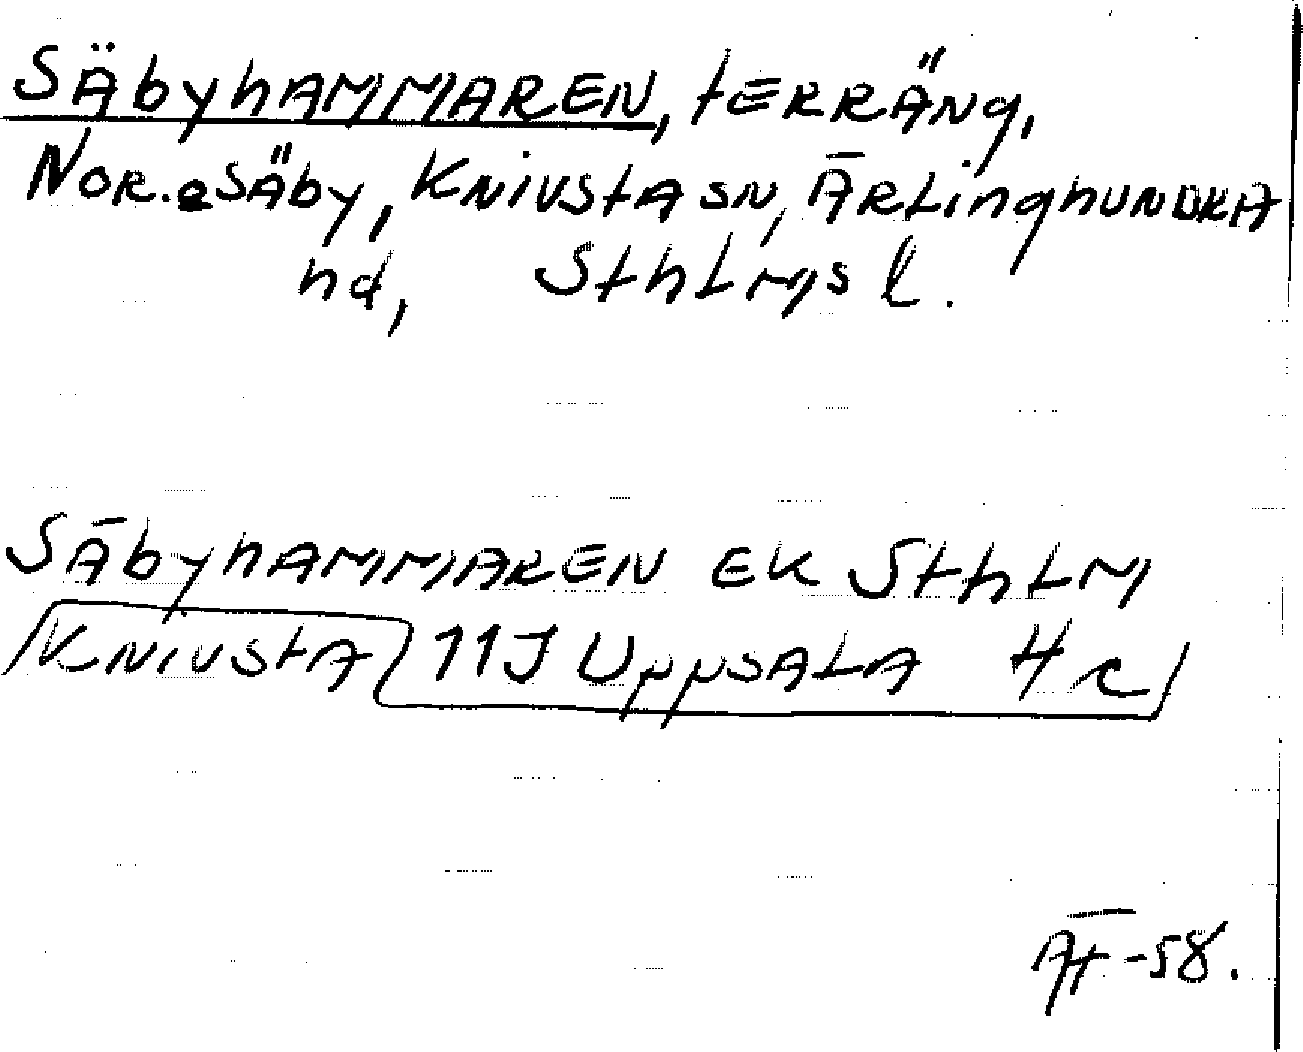 Säbyhammaren, terräng,
Nor.e Säby, Knivsta sn, Ärlinghundra
hd, Sthlms l.
Säbyhammaren EK Sthlm
Knivsta 11J Uppsala 4c
-58.